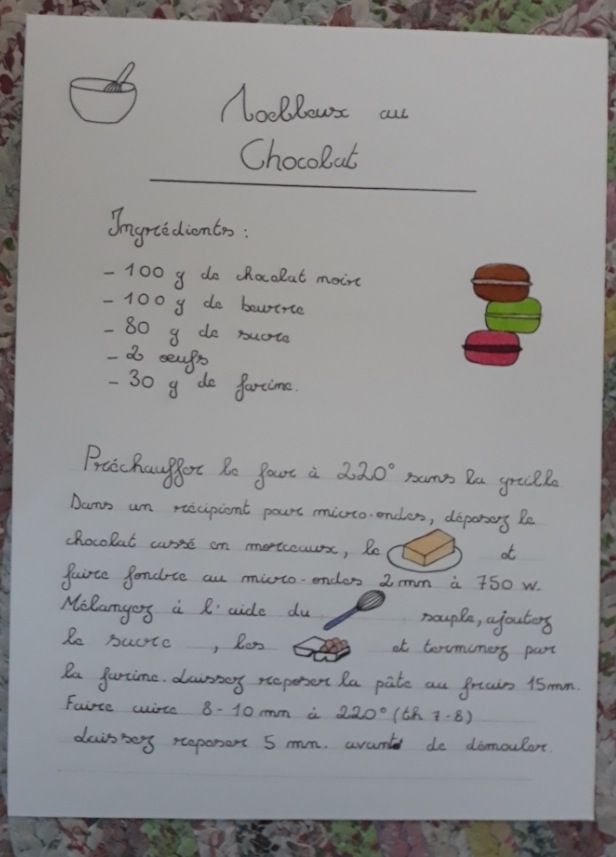 Moelleux au
Chocolat
Ingrédients :
- 100 g de chocolat noir
- 100 g de beurre
- 80 g de sucre
- 2 œufs
- 30 g de farine.
Préchauffer le four à 220° sans la grille
Dans un récipient pour micro-ondes, déposez le
chocolat cassé en morceaux, le et
faire fondre au micro-ondes 2 mn à 750 w.
Mélangez à l'aide du souple, ajoutez
le sucre , les et terminez par
la farine. Laissez reposer la pâte au frais 15mn.
Faire cuire 8-10 mn à 220° (th 7-8)
Laissez reposer 5 mn. avant de démouler.